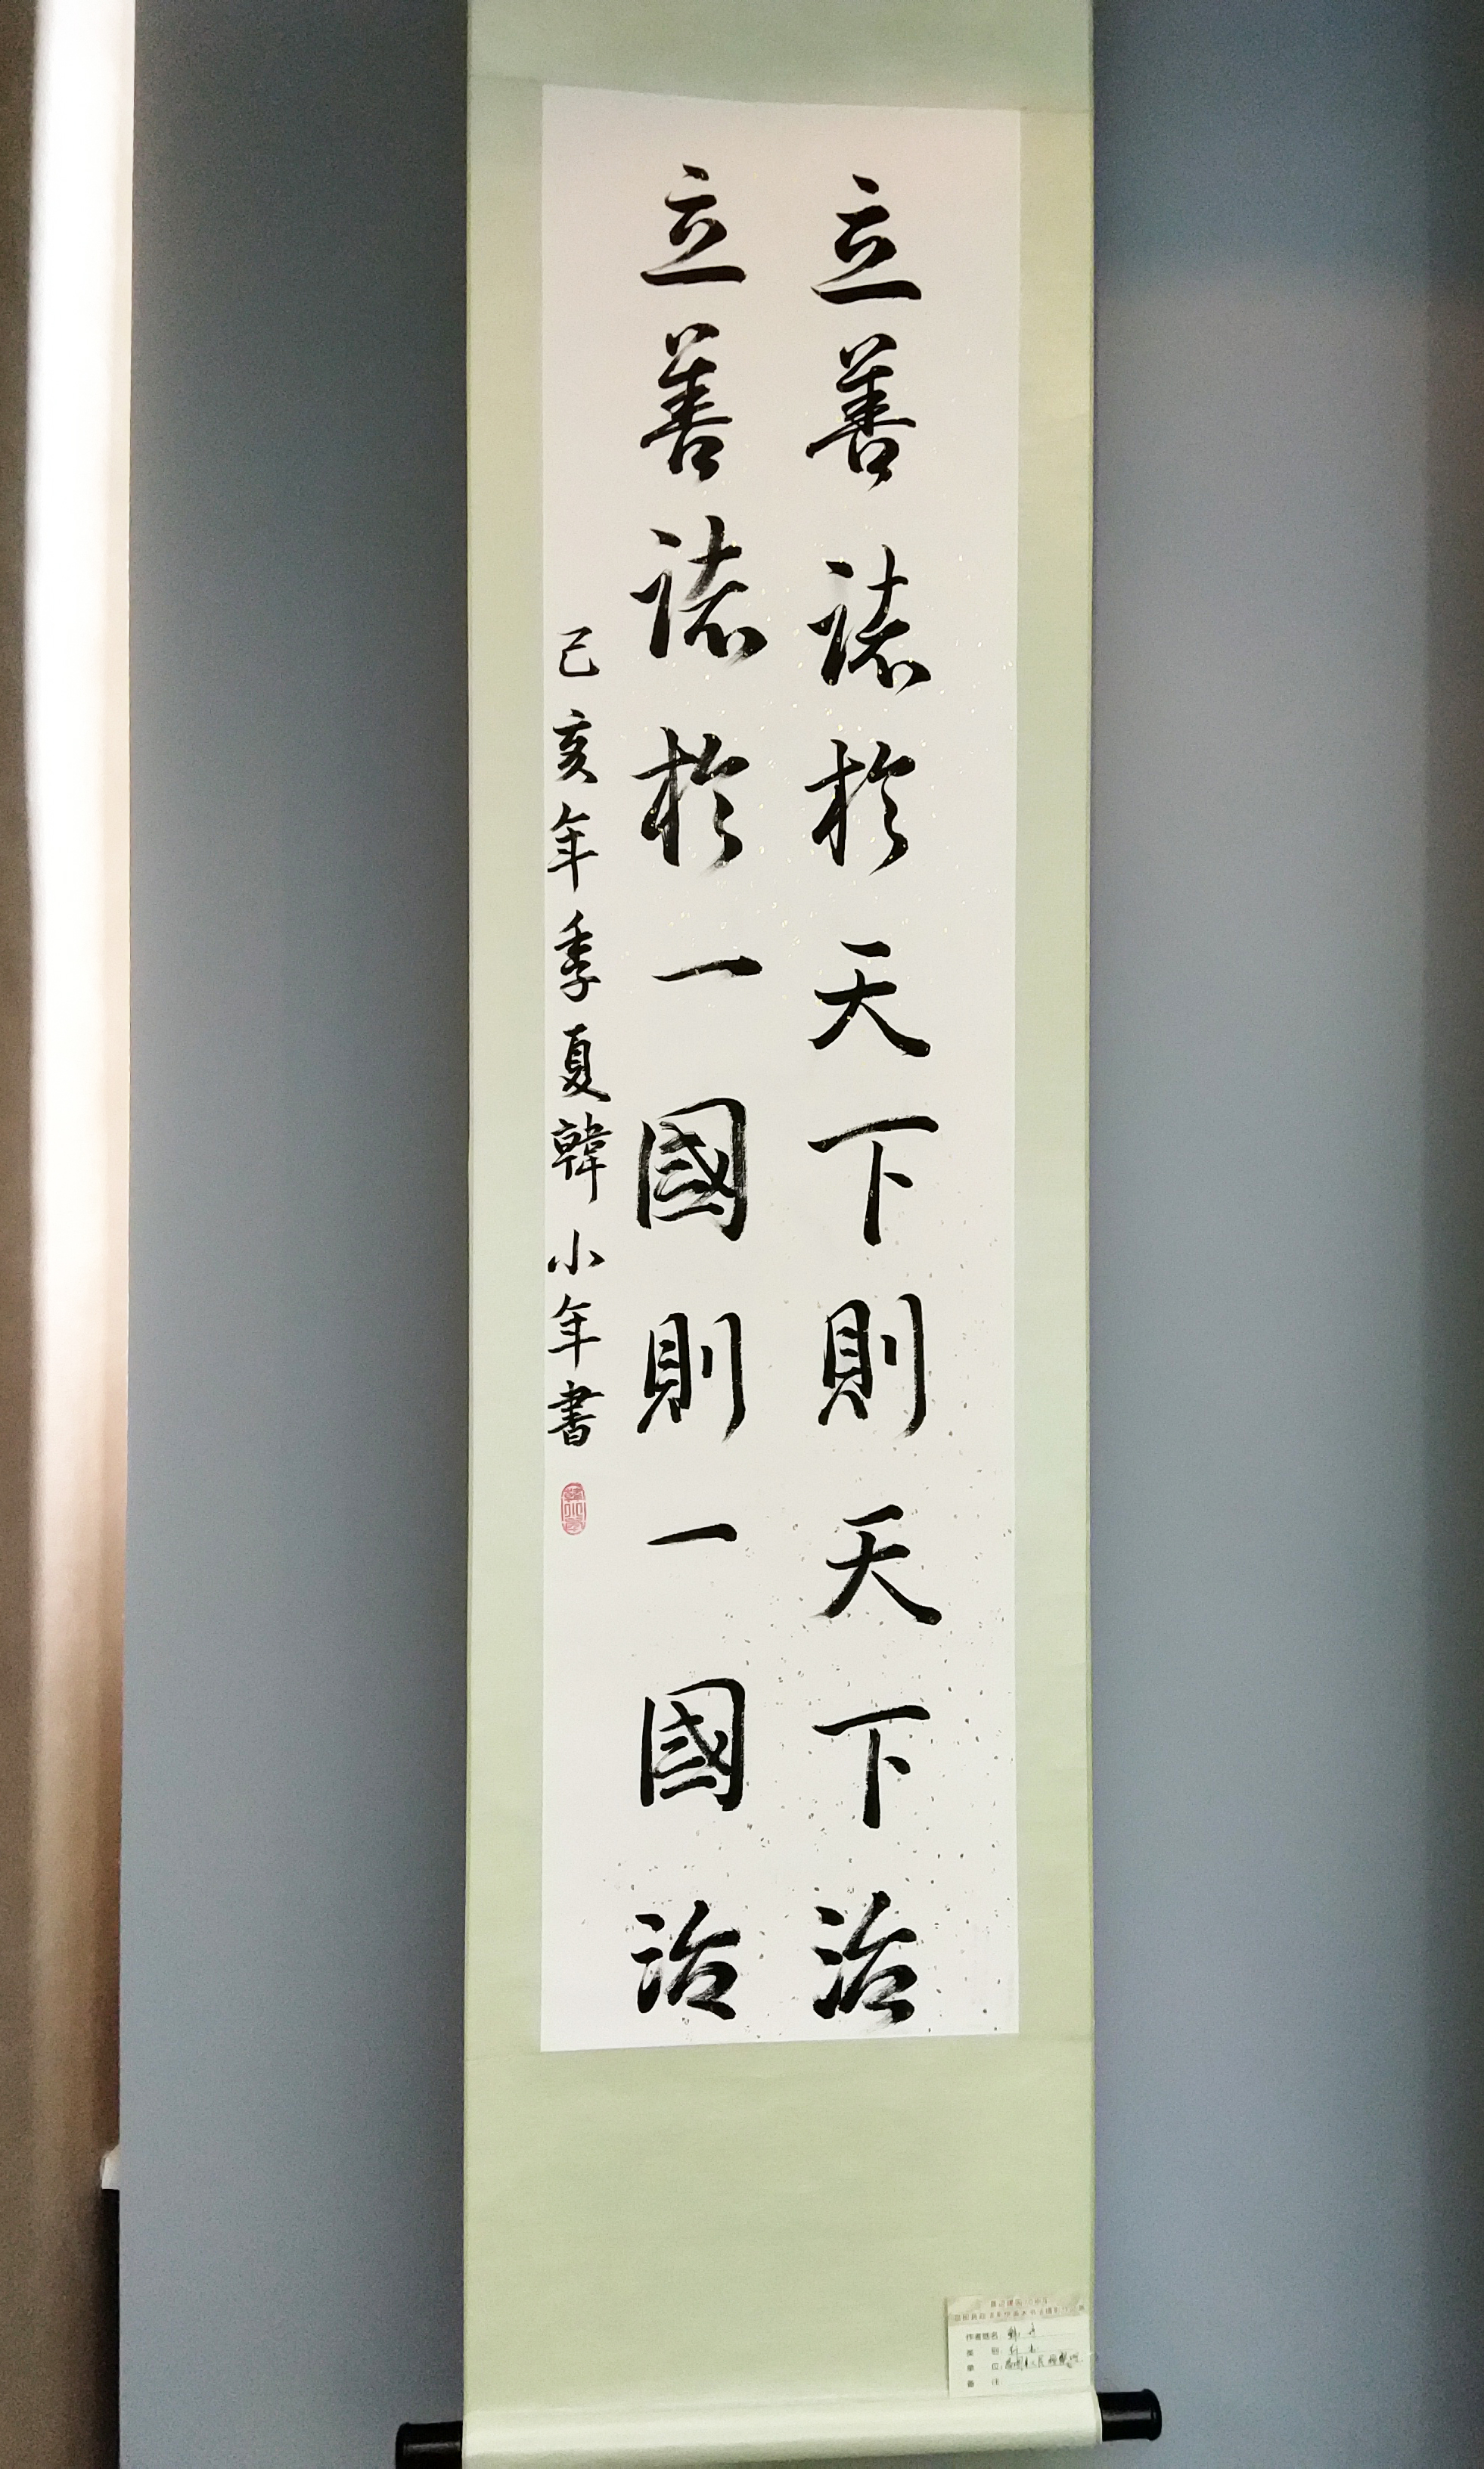 立善法於天下則天下治
立善法於一國則一國治
己亥年季夏韓小年書
作者姓名：
类 别：
单 位：
备 注：